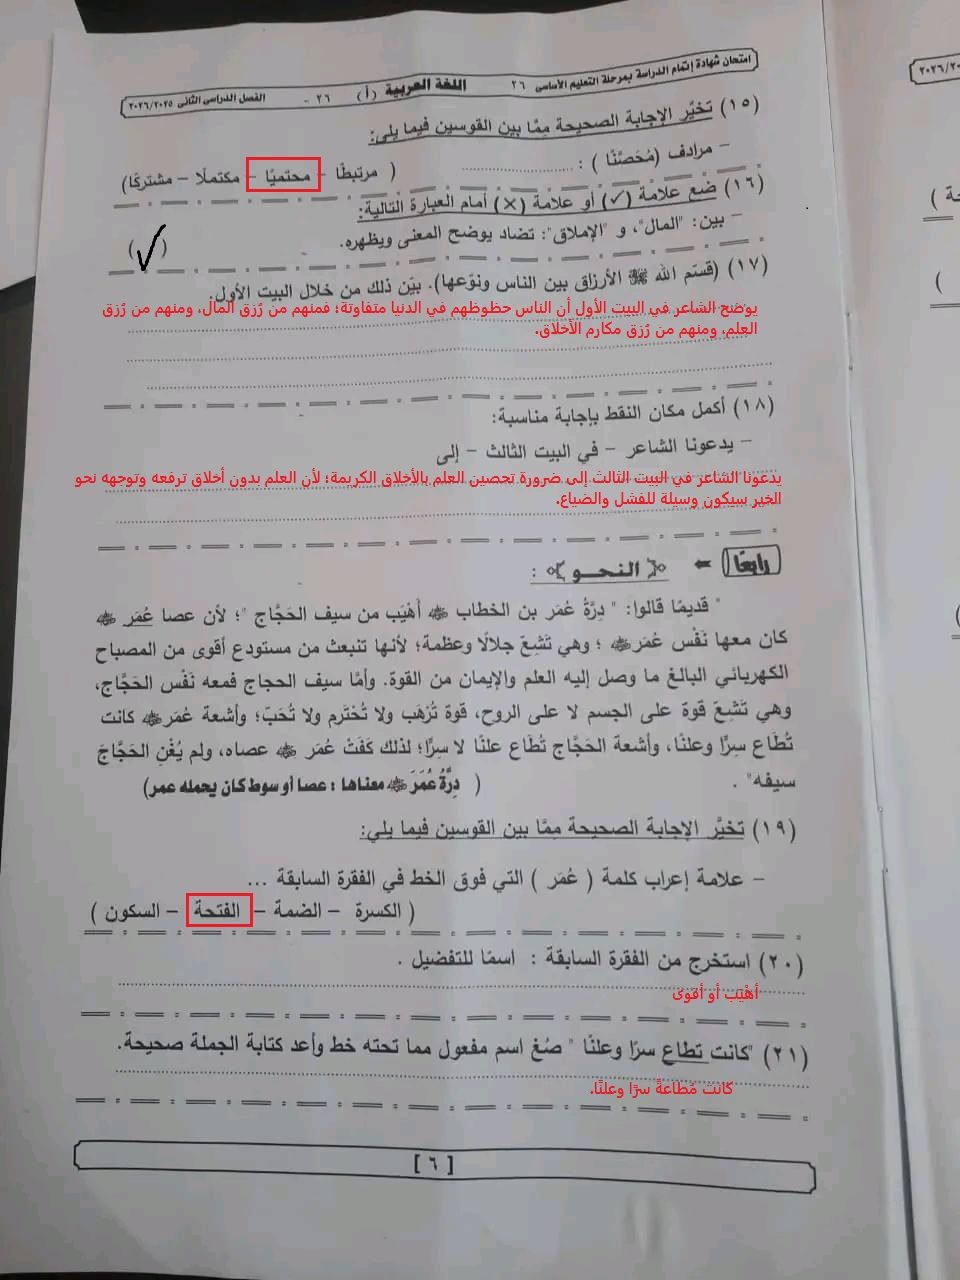 امتحان شهادة إتمام الدراسة بمرحلة التعليم الأساسى ٢٦ اللغة العربية (أ) ٢٦ - الفصل الدراسى الثانى ٢٠٢٦/٢٠٢٥
(١٥) تخيَّر الإجابة الصحيحة مِمَّا بين القوسين فيما يلي:
– مرادف (مُحَصَّنًا ) : ( مرتبطًا – محتميًا – مكتملًا – مشتركًا)
(١٦) ضع علامة (✓) أو علامة (×) أمام العبارة التالية:
– بين: "المال"، و "الإملاق": تضاد يوضح المعنى ويظهره. ( ✓ )
(١٧) (قسّم الله ﷻ الأرزاق بين الناس ونوّعها). بيّن ذلك من خلال البيت الأول.
يوضح الشاعر في البيت الأول أن الناس حظوظهم في الدنيا متفاوتة؛ فمنهم من رُزق المال، ومنهم من رُزق
العلم، ومنهم من رُزق مكارم الأخلاق.
(١٨) أكمل مكان النقط بإجابة مناسبة:
– يدعونا الشاعر – في البيت الثالث – إلى
يدعونا الشاعر في البيت الثالث إلى ضرورة تحصين العلم بالأخلاق الكريمة؛ لأن العلم بدون أخلاق ترفعه وتوجهه نحو
الخير سيكون وسيلة للفشل والضياع.
رابعًا ← النحـو :
" قديمًا قالوا: " دِرَّةُ عُمَر بن الخطاب ﷺ أَهْيَب من سيف الحَجَّاج "؛ لأن عصا عُمَر ﷺ
كان معها نَفْس عُمَر ﷺ ؛ وهي تَشِعّ جلالًا وعظمة؛ لأنها تنبعث من مستودع أقوى من المصباح
الكهربائي البالغ ما وصل إليه العلم والإيمان من القوة. وأمَّا سيف الحجاج فمعه نَفْس الحَجَّاج،
وهي تَشِعّ قوة على الجسم لا على الروح، قوة تُرْهَب ولا تُحْتَرم ولا تُحَبّ؛ وأشعة عُمَر ﷺ كانت
تُطَاع سِرًّا وعلنًا، وأشعة الحَجَّاج تُطَاع علنًا لا سِرًّا؛ لذلك كَفَتْ عُمَر ﷺ عصاه، ولم يُغْنِ الحَجَّاجَ
سيفه" . ( دِرَّةُ عُمَرَ ﷺ معناها : عصا أو سوط كان يحمله عمر)
(١٩) تخيَّر الإجابة الصحيحة مِمَّا بين القوسين فيما يلي:
– علامة إعراب كلمة ( عُمَر ) التي فوق الخط في الفقرة السابقة ...
( الكسرة – الضمة – الفتحة – السكون )
(٢٠) استخرج من الفقرة السابقة : اسمًا للتفضيل .
أَهْيَب أو أقوى
(٢١) "كانت تطاع سرًا وعلنًا " صُغ اسم مفعول مما تحته خط وأعد كتابة الجملة صحيحة.
كانت مُطاعةً سرًا وعلنًا.
[ ٦ ]